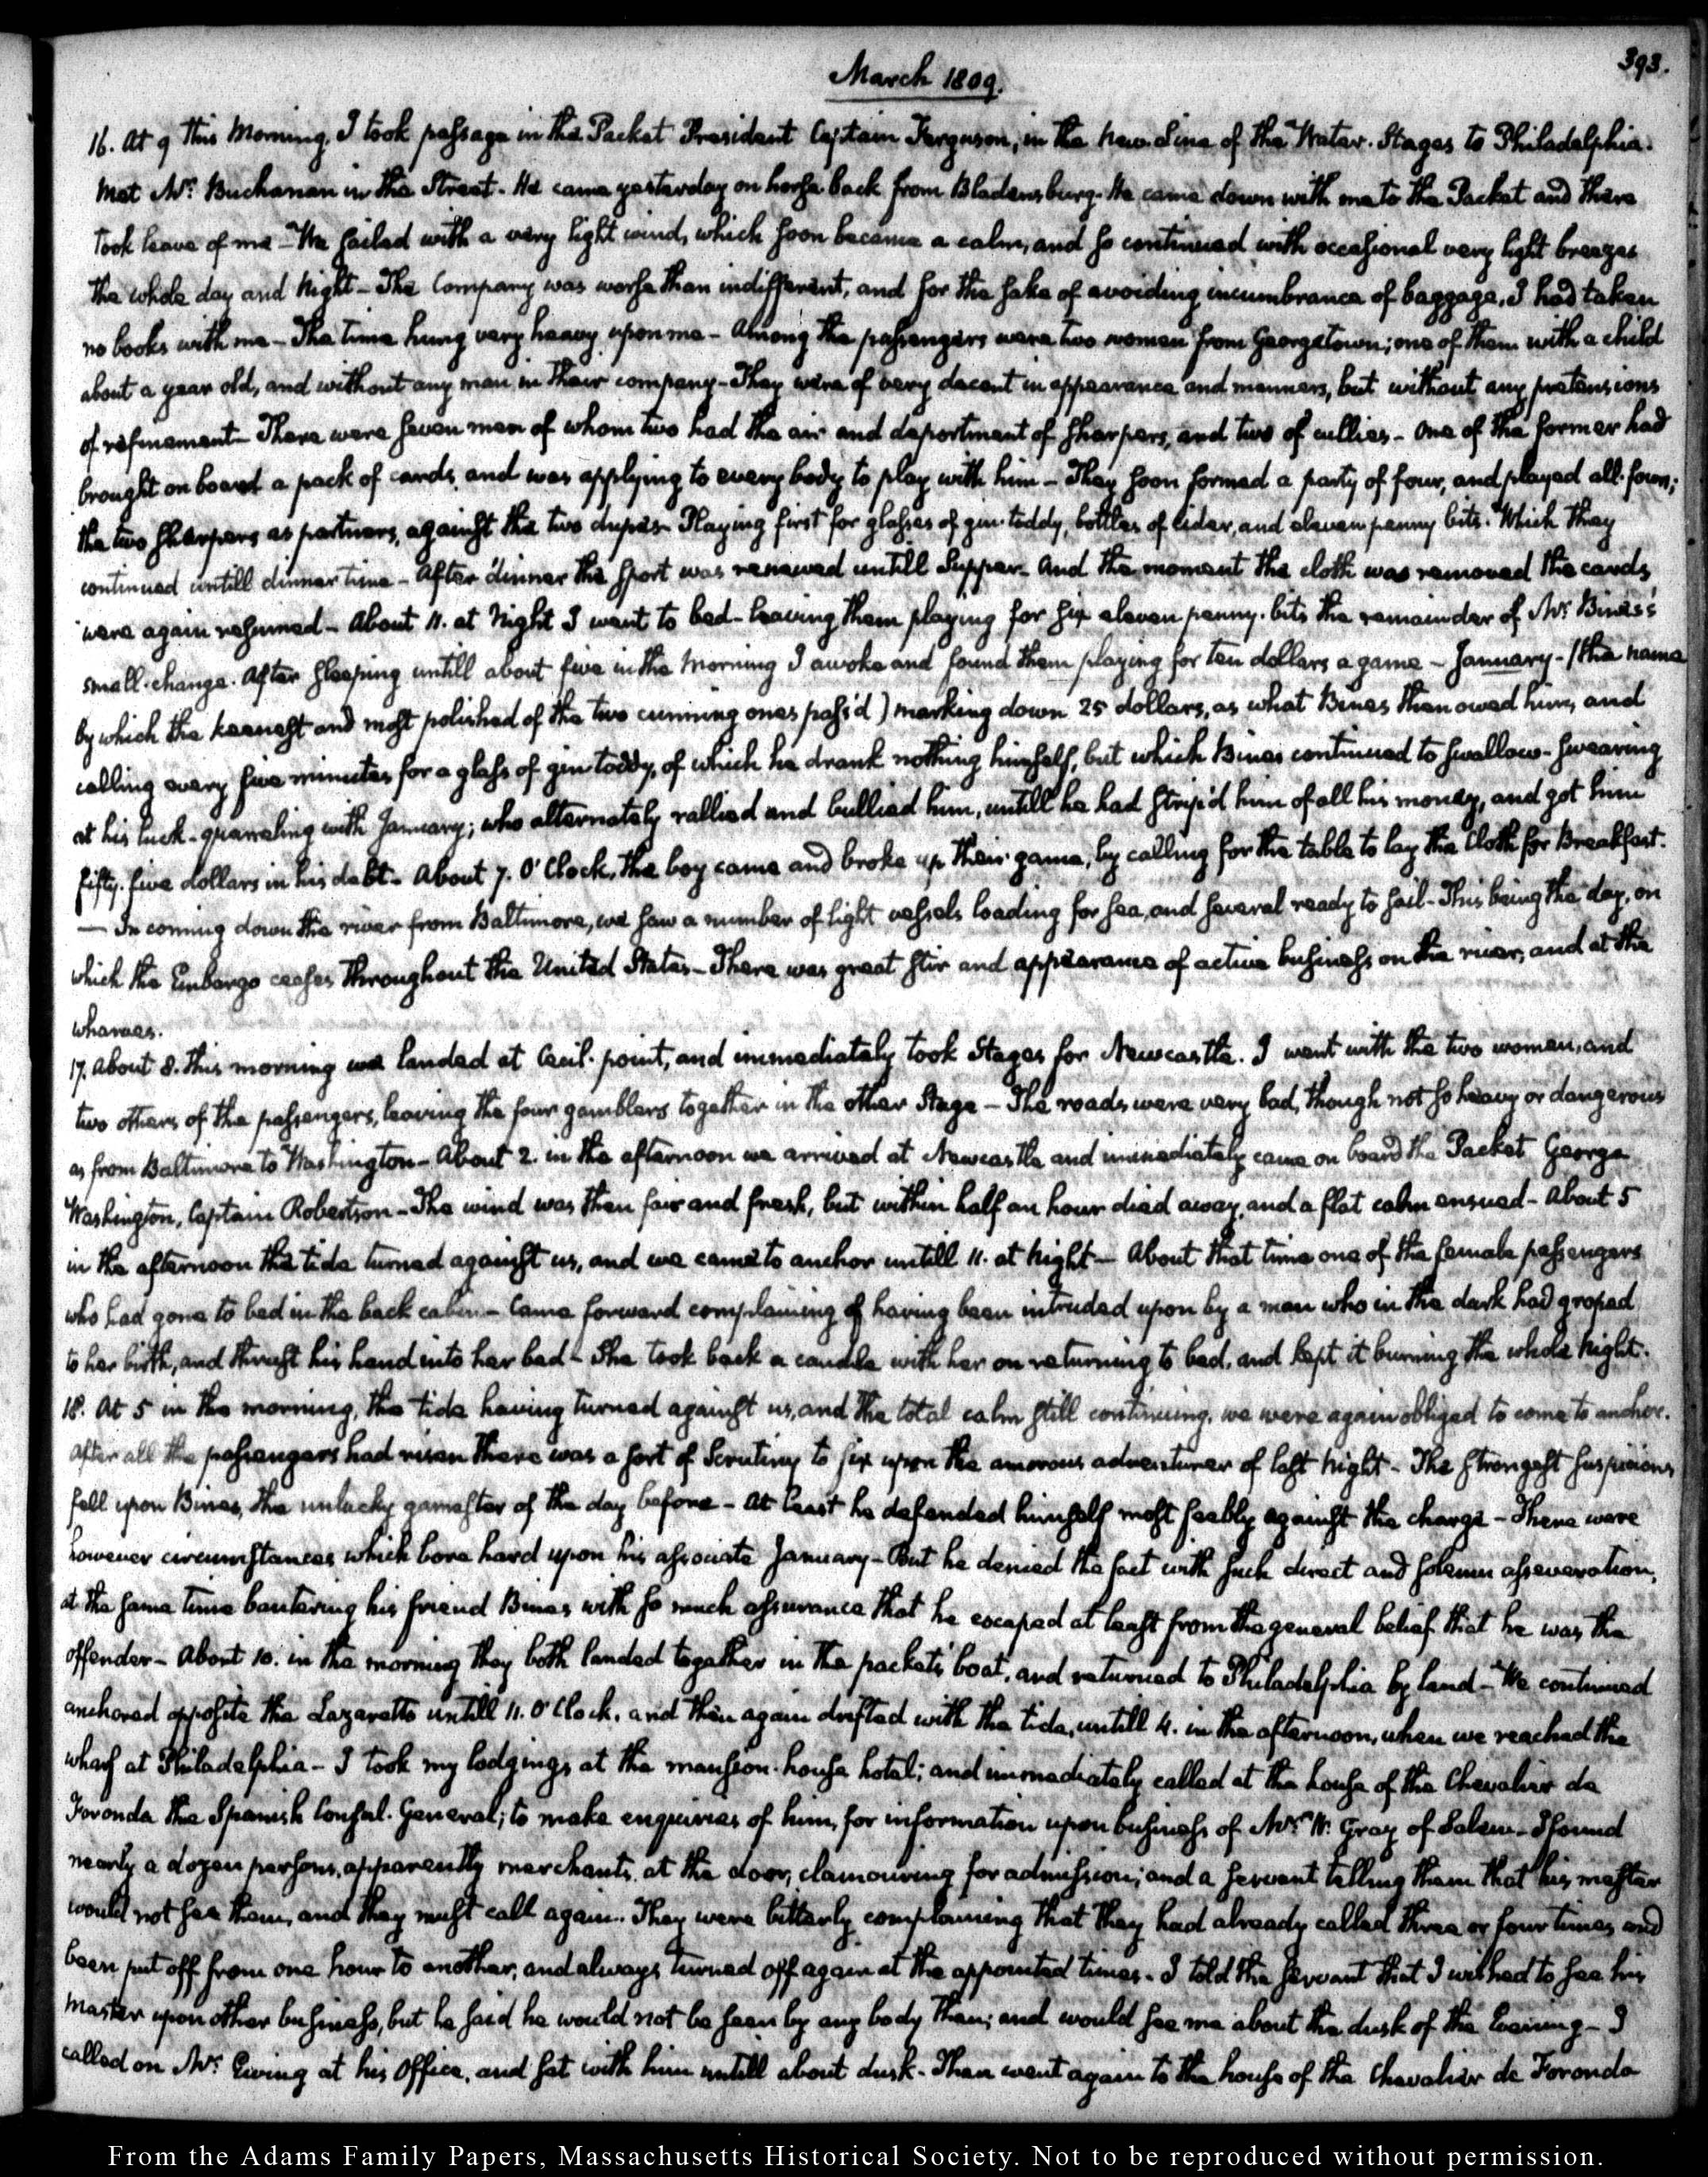 393.
March 1809.
16. At 9 this Morning, I took passage in the Packet President Captain Ferguson, in the new Line of the Water-Stages to Philadelphia.
Met Mr. Buchanan in the Street- He came yesterday on horse back from Bladensburg- He came down with me to the Packet and there
took leave of me- We sailed with a very light wind, which soon became a calm, and so continued with occasional very light breezes
the whole day and Night- The Company was worse than indifferent, and for the sake of avoiding incumbrance of baggage, I had taken
no books with me- The time hung very heavy upon me- Among the passengers were two women from Georgetown; one of them with a child
about a year old, and without any man in their company- They were of very decent in appearance and manners, but without any pretensions
of refinement- There were seven men of whom two had the air and deportment of sharpers, and two of cullies- One of the former had
brought on board a pack of cards, and was applying to every body to play with him- They soon formed a party of four, and played all-fours;
the two sharpers as partners, against the two dupes- Playing first for glasses of gin-toddy, bottles of Cider, and eleven penny bits. Which they
continued untill dinner time- After dinner the sport was renewed untill Supper- And the moment the cloth was removed the cards
were again resumed- About 11. at Night I went to bed- leaving them playing for six eleven penny-bits the remainder of Mr. Bines's
small-change. After sleeping untill about five in the Morning I awoke and found them playing for ten dollars a game- January- (the name
by which the keenest and most polished of the two cunning ones pass'd) marking down 25 dollars, as what Bines then owed him, and
calling every five minutes for a glass of gin toddy, of which he drank nothing himself, but which Bines continued to swallow- swearing
at his luck- quarreling with January; who alternately rallied and bullied him, untill he had strip'd him of all his money, and got him
fifty-five dollars in his debt- About 7. O'Clock, the boy came and broke up their game, by calling for the table to lay the Cloth for Breakfast.
— In coming down the river from Baltimore, we saw a number of light vessels loading for sea, and several ready to sail- This being the day, on
which the Embargo ceases throughout the United States- There was great stir and appearance of active business on the river, and at the
wharves.
17. About 8. this morning we landed at Cecil-point, and immediately took Stages for Newcastle. I went with the two women, and
two others of the passengers, leaving the four gamblers together in the other Stage- The roads were very bad, though not so heavy or dangerous
as from Baltimore to Washington- About 2. in the afternoon we arrived at Newcastle and immediately came on board the Packet George
Washington, Captain Robertson- The wind was then fair and fresh, but within half an hour died away, and a flat calm ensued- About 5
in the afternoon the tide turned against us, and we came to anchor untill 11. at Night- About that time one of the female passengers
who had gone to bed in the back cabin- Came forward complaining of having been intruded upon by a man who in the dark had groped
to her birth, and thrust his hand into her bed- She took back a candle with her on returning to bed, and kept it burning the whole Night.
18. At 5 in the morning, the tide having turned against us, and the total calm still continuing, we were again obliged to come to anchor.
After all the passengers had risen there was a sort of Scrutiny to fix upon the amorous adventurer of last Night- The strongest suspicions
fell upon Bines, the unlucky gamester of the day before- At least he defended himself most feebly against the charge- There were
however circumstances which bore hard upon his associate January- But he denied the fact with such direct and solemn asseveration,
at the same time bantering his friend Bines with so much assurance that he escaped at least from the general belief that he was the
offender- About 10. in the morning they both landed together in the packet's boat, and returned to Philadelphia by land- We continued
anchored opposite the Lazaretto untill 11. O'Clock. and then again drifted with the tide, untill 4. in the afternoon, when we reached the
wharf at Philadelphia- I took my lodgings at the mansion-house hotel; and immediately called at the house of the Chevalier de
Foronda the Spanish Consul-General; to make enquiries of him, for information upon business of Mr. W. Gray of Salem- I found
nearly a dozen persons, apparently merchants, at the door, clamouring for admission; and a servant telling them that his master
would not see them, and they must call again. They were bitterly complaining that they had already called three or four times and
been put off from one hour to another, and always turned off again at the appointed times- I told the servant that I wished to see his
Master upon other business, but he said he would not be seen by any body then; and would see me about the dusk of the Evening- I
called on Mr. Ewing at his Office, and sat with him untill about dusk- Then went again to the house of the Chevalier de Foronda
From the Adams Family Papers, Massachusetts Historical Society. Not to be reproduced without permission.